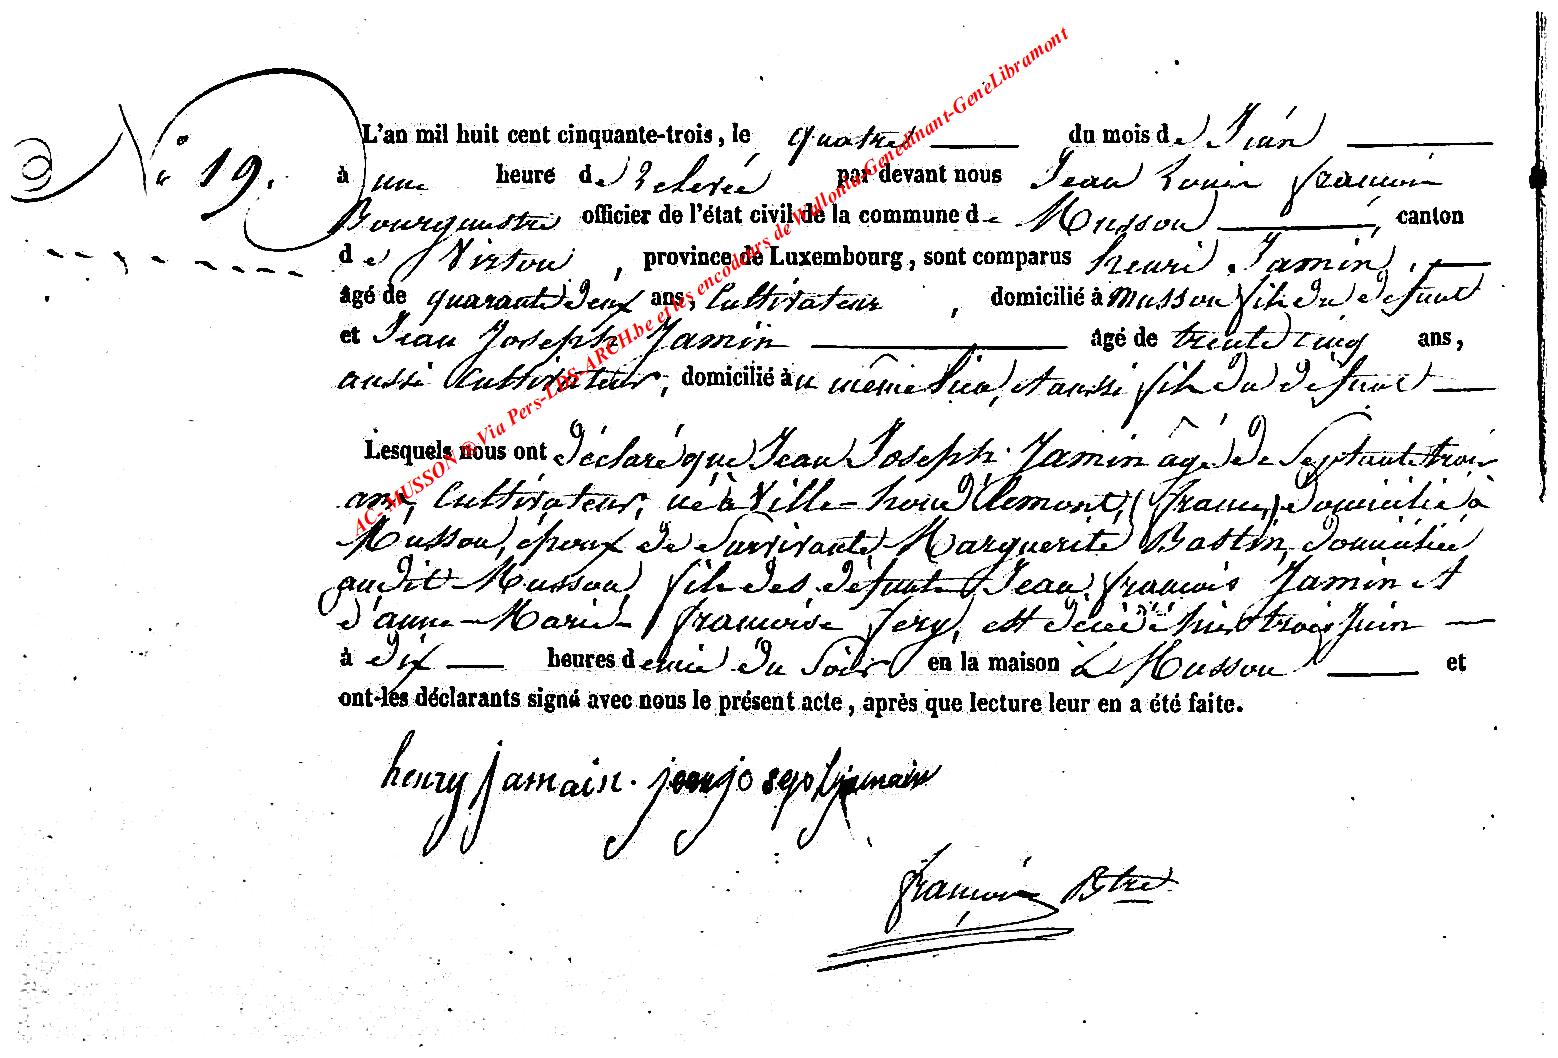 N° 19.
L'an mil huit cent cinquante-trois, le quatre du mois de Juin
à une heure de relevée par devant nous Jean Louis françois
Bourgmestre officier de l'état civil de la commune de Musson, canton
de Virton, province de Luxembourg, sont comparus henri Jamin,
âgé de quarante deux ans, Cultivateur, domicilié à Musson fils du defunt
et Jean Joseph Jamin âgé de trente cinq ans,
aussi Cultivateur, domicilié au même lieu, et aussi fils du défunt
Lesquels nous ont déclaré que Jean Joseph Jamin âgé de Septante trois
ans, Cultivateur, né à Ville-houdlemont, (france) domicilié à
Musson, époux de Survivante Marguerite Bastin, domiciliée
audit Musson fils des défunts Jean françois Jamin et
d'anne-Marie françoise Jery, est décédé hier trois Juin
à dix heures demie du Soir en la maison à Musson et
ont-les déclarants signé avec nous le présent acte, après que lecture leur en a été faite.
henry jamain. jean joseph jamain
françois Btre
AC-MUSSON ® Via Pers-LDS-ARCH.be et les encodeurs de Wallonia-Genedinant-GeneLibramont